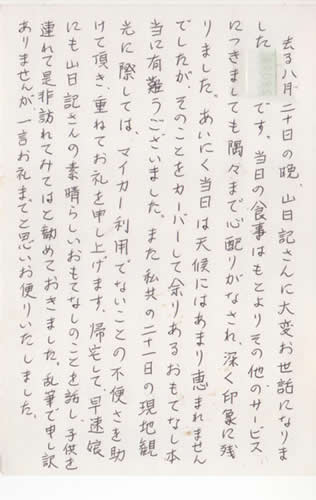 去る八月二十日の晩、山日記さんに大変お世話になりま
した　　　です。当日の食事はもとよりその他のサービス
につきましても隅々まで心配りがなされ、深く印象に残
りました。あいにく当日は天候にはあまり恵まれません
でしたが、そのことをカーバーして余りあるおもてなし本
当に有難うございました。また私共の二十一日の現地観
光に際しては、マイカー利用でないことの不便さを助
けて頂き、重ねてお礼を申し上げます。帰宅して、早速娘
にも山日記さんの素晴らしいおもてなしのことを話し、子供を
連れて是非訪れてみてはと勧めておきました。乱筆で申し訳
ありませんが、一言お礼までと思いお便りいたしました。